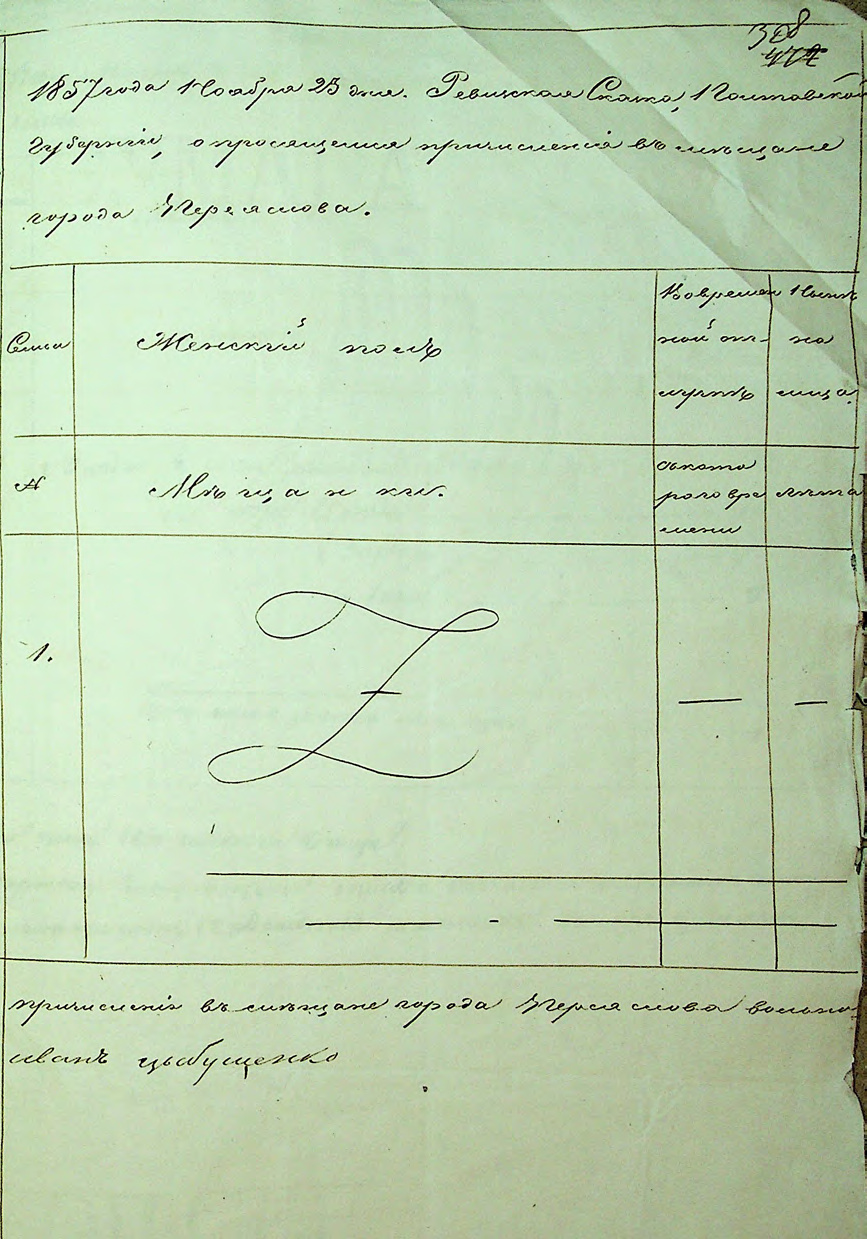 328
477
1857 года Ноября 23 дня. Ревизская Сказка, Полтавской
Губерніи, о просящемся причисленія въ мѣщане
города Переяслова.
Семья
Женскій полъ
Во времен
ной от-
лучкѣ
Нынѣ
на
лицо.
№
Мѣщанки.
съ кото
раго вре
мени
лѣта
1.
причисленія въ мѣщане города Переяслова вольно-
иванъ Цыбущенко